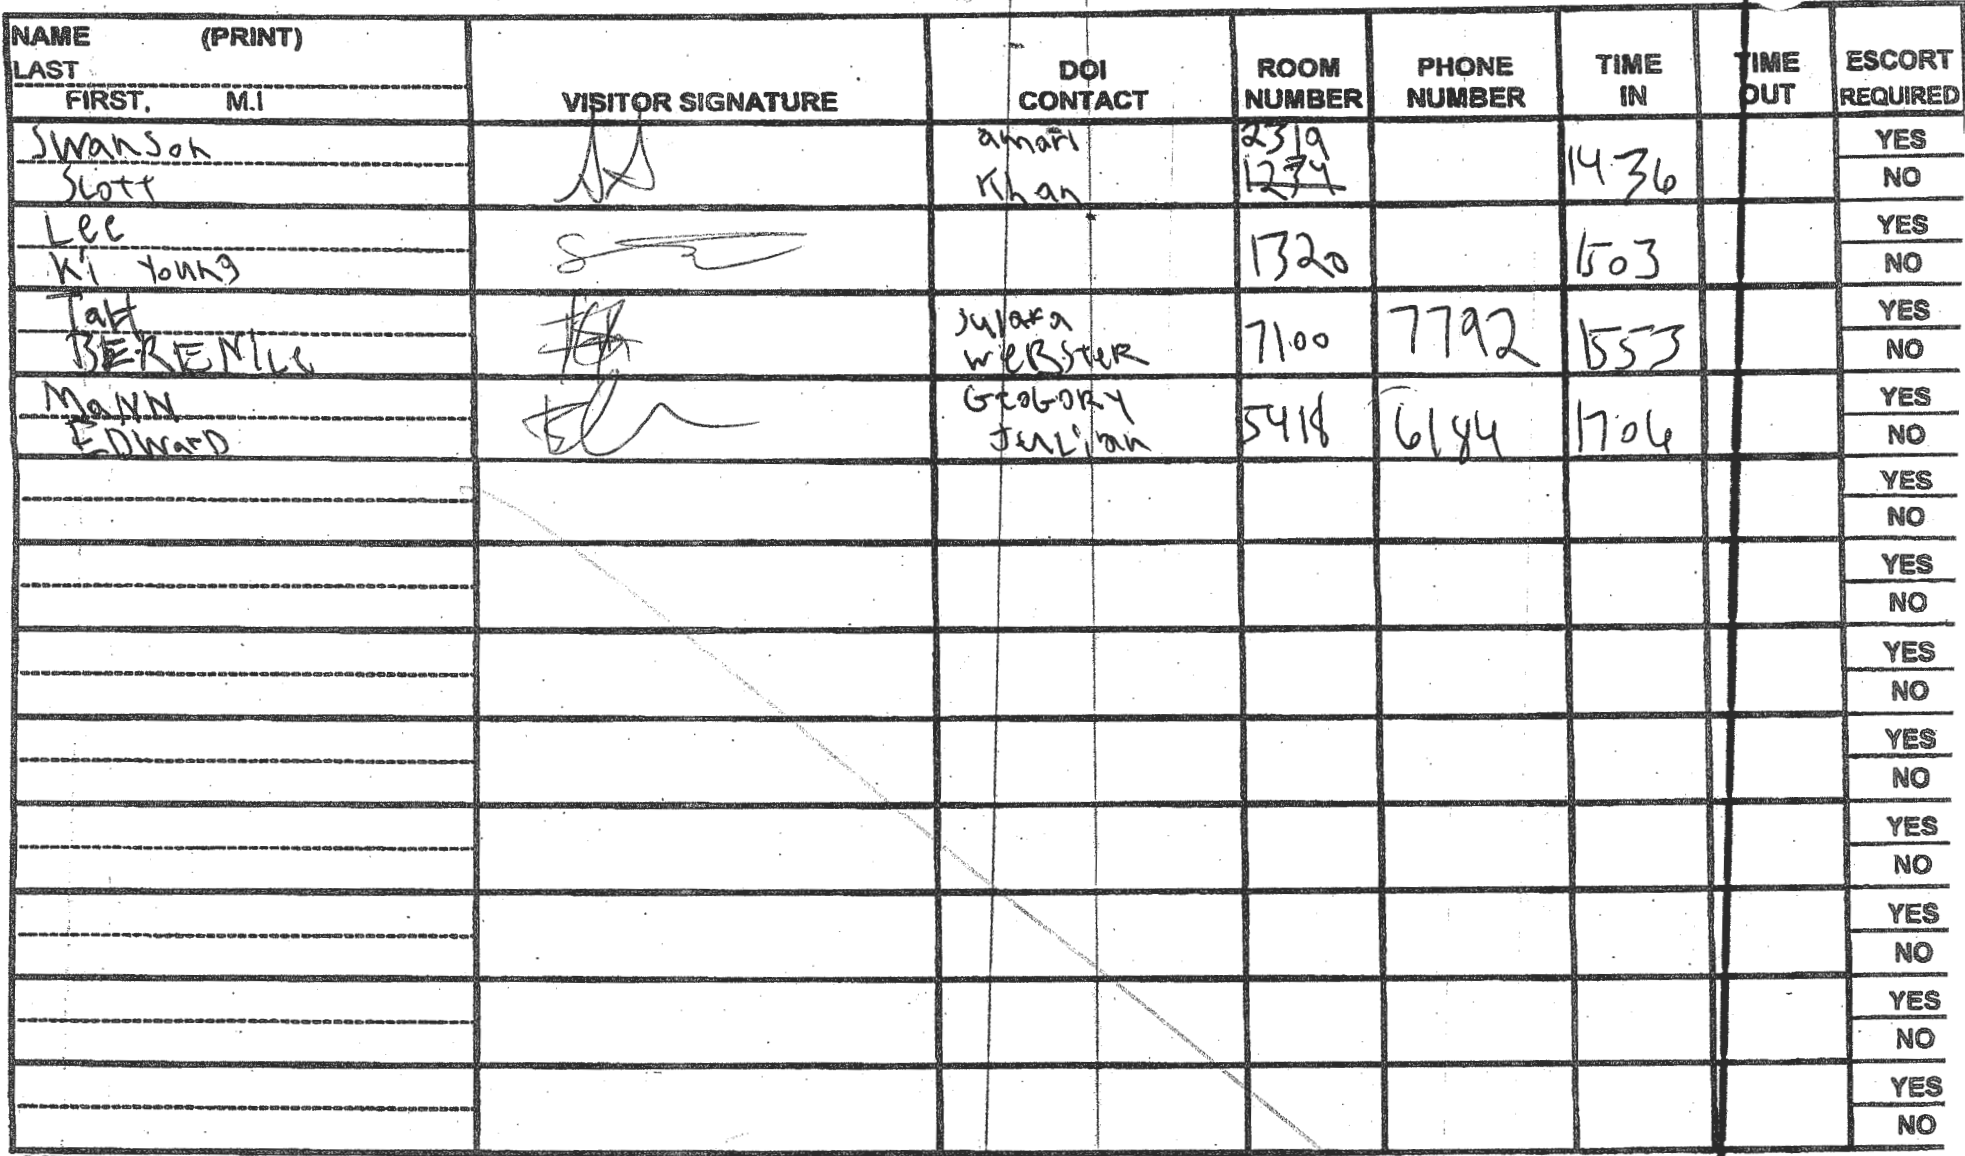 NAME (PRINT)
LAST
FIRST, M.I
VISITOR SIGNATURE
DOI
CONTACT
ROOM
NUMBER
PHONE
NUMBER
TIME
IN
TIME
OUT
ESCORT
REQUIRED
Swanson
Scott
amari
Khan
2319
1234
14:36
YES
NO
Lee
Ki Young
1320
1503
YES
NO
BERENICE
WEBSTER
7100
7792
1553
YES
NO
MANN
EDWARD
JULLIAN
5418
6184
1706
YES
NO
YES
NO
YES
NO
YES
NO
YES
NO
YES
NO
YES
NO
YES
NO
YES
NO